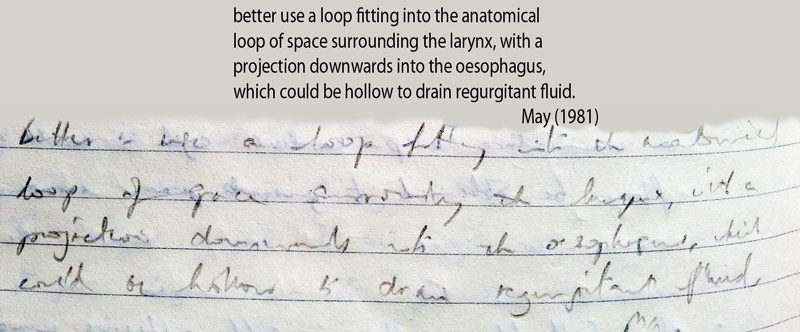 better use a loop fitting into the anatomical
loop of space surrounding the larynx, with a
projection downwards into the oesophagus,
which could be hollow to drain regurgitant fluid.
May (1981)
better to use a loop fitting into the anatomical
loop of space surrounding the larynx, with a
projection downwards into the oesophagus, which
could be hollow to drain regurgitant fluid.